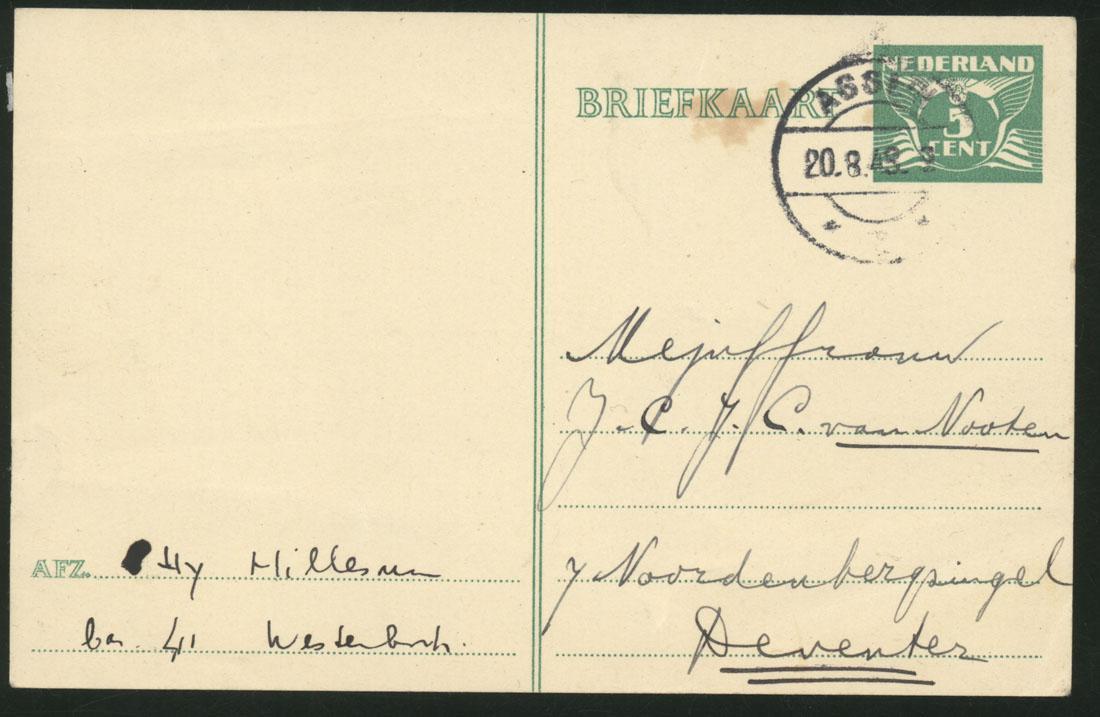 NEDERLAND
5
CENT
BRIEFKAART
ASSEN
20.8.43.
Mejuffrouw
J. C. J. C. van Nooten
7 Noordenbergsingel
Deventer
AFZ. Etty Hillesum
bar. 41 Westerbork.